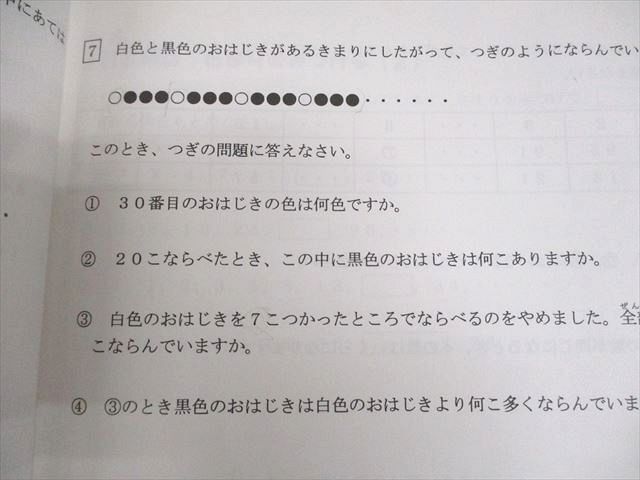 中にあては
7 白色と黒色のおはじきがあるきまりにしたがって、つぎのようにならんでい
○●●●○●●●○●●●○●●●・・・・・・
このとき、つぎの問題に答えなさい。
① 30番目のおはじきの色は何色ですか。
② 20こならべたとき、この中に黒色のおはじきは何こありますか。
③ 白色のおはじきを7こつかったところでならべるのをやめました。全
こならんでいますか。
④ ③のとき黒色のおはじきは白色のおはじきより何こ多くならんでいま